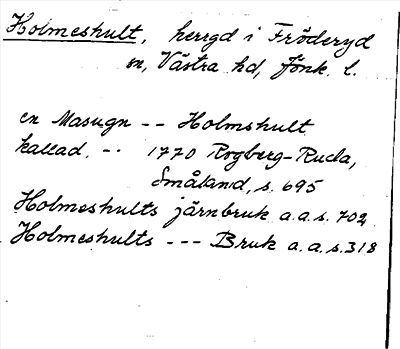 Holmeshult, herrgd i Fröderyd
sn, Västra hd, Jönk. l.
en Masugn -- Holmshult
kallad, -. 1770 Rogberg-Ruda,
Småland, s. 695
Holmeshults järnbruk a.a.s. 702
Holmeshults --- Bruk a.a.s.318